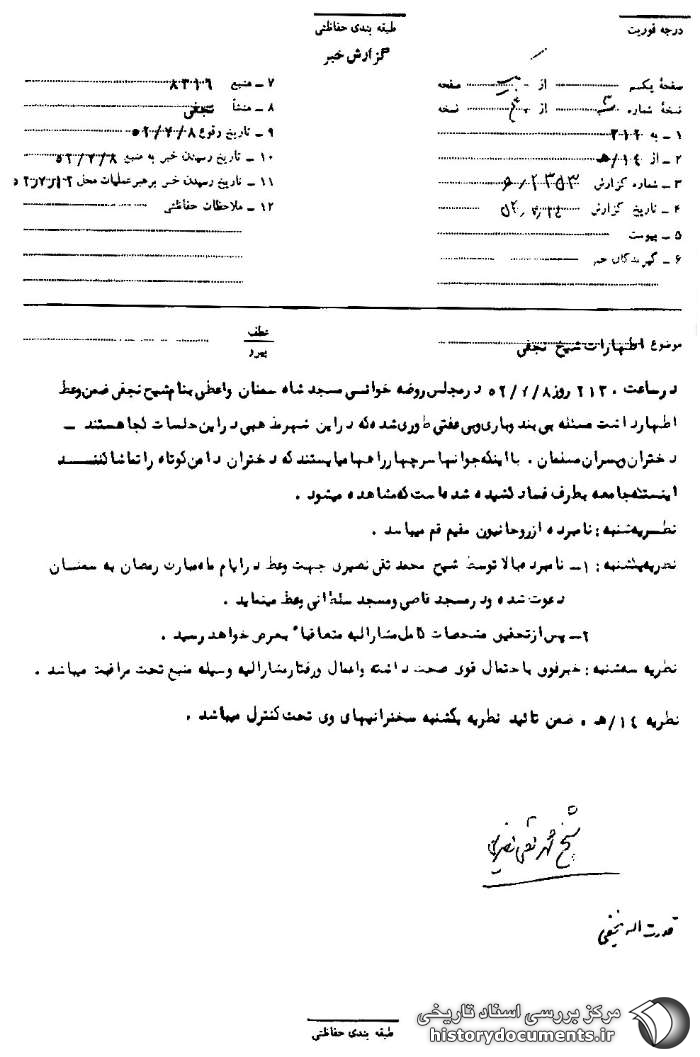 درجه فوریت
طبقه بندی حفاظتی
گزارش خبر
صفحهٔ یکم از یک صفحه
نسخهٔ شماره از نسخه
۱ ـ به ۳۱۲
۲ ـ از ۱۴/هـ
۳ ـ شماره گزارش
۴ ـ تاریخ گزارش
۵ ـ پیوست
۶ ـ گیرندگان خبر
۷ ـ منبع ۸۳۱۶
۸ ـ منشأ نجفی
۹ ـ تاریخ وقوع ۵۲/۷/۸
۱۰ ـ تاریخ رسیدن خبر به منبع ۵۲/۷/۸
۱۱ ـ تاریخ رسیدن خبر برهبر عملیات محل
۱۲ ـ ملاحظات حفاظتی
موضوع اظهارات شیخ نجفی
عطف
پیرو
در ساعت ۲۱۳۰ روز ۵۲/۷/۸ در مجلس روضه خوانی مسجد شاه سمنان واعظی بنام شیخ نجفی ضمن وعظ
اظهار داشت مسئله بی بند وباری وبی عفتی طوری شده که در این شهر مذهبی در این جلسات کجا هستند ـ
دختران وپسران مسلمان . با اینکه جوانها سر چهارراهها میایستند که دختران دامن کوتاه را تماشا کنند
اینستکه جامعه بطرف فساد کشیده شده است که مشاهده میشود .
نظریه شنبه : نامبرده از روحانیون مقیم قم میباشد .
نظریه یکشنبه : ۱ـ نامبرده بالا توسط شیخ محمد تقی نصیری جهت وعظ در ایام ماه مبارک رمضان به سمنان
دعوت شده ودر مسجد ومسجد سلطانی وعظ مینماید .
۲ـ پس از تحقیق مشخصات کامل مشارالیه متعاقباً بعرض خواهد رسید .
نظریه سه‌شنبه : خبر فوق باحتمال قوی صحت داشته واعمال ورفتار مشارالیه وسیله منبع تحت مراقبت میباشد .
نظریه ۱۴/هـ . ضمن تائید نظریه یکشنبه سخنرانیهای وی تحت کنترل میباشد .
شیخ محمد تقی نصیری
قدرت اله نجفی
طبقه بندی حفاظتی
مرکز بررسی اسناد تاریخی
historydocuments.ir